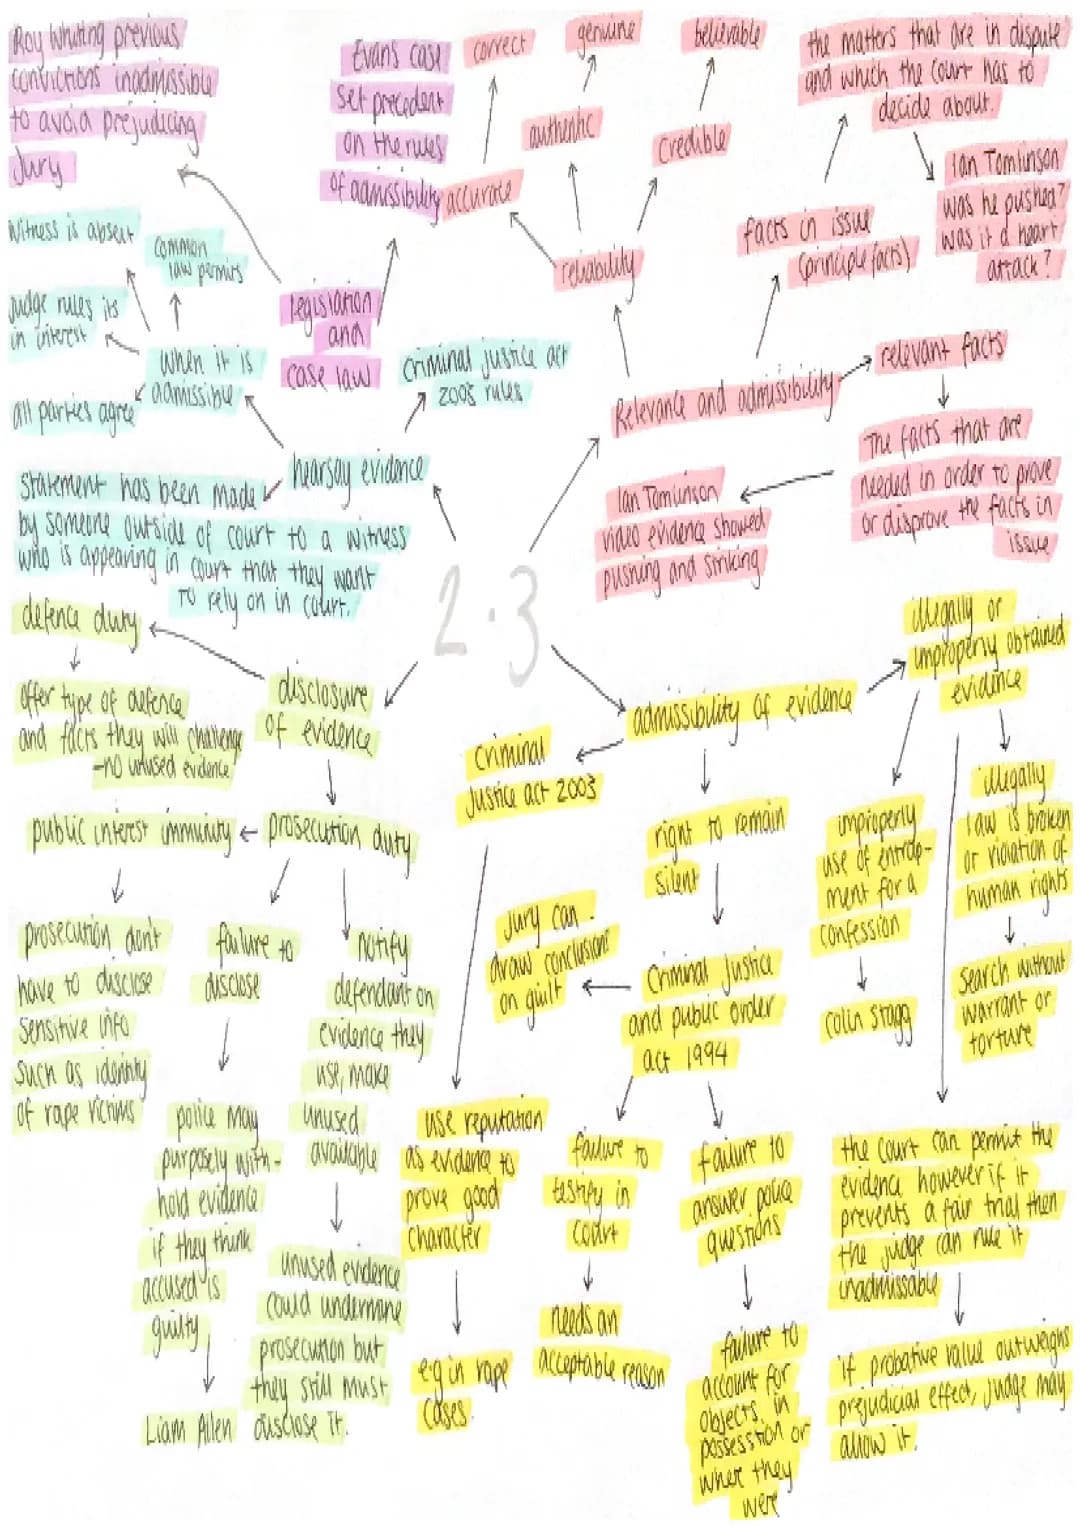 Roy Whiting previous
convictions inadmissible
to avoid prejudicing
Jury
Evans case
set precedent
on the rules
of admissibility
legislation
and
case law
correct
genuine
believable
accurate
authentic
credible
reliability
the matters that are in dispute
and which the court has to
decide about.
Ian Tomlinson
was he pushed?
was it a heart
attack?
facts in issue
(principle facts)
Relevance and admissibility
relevant facts
The facts that are
needed in order to prove
or disprove the facts in
issue
Ian Tomlinson
video evidence showed
pushing and striking
witness is absent
common
law permits
Judge rules its
in interest
all parties agree
when it is
admissible
criminal justice act
2003 rules
hearsay evidence
statement has been made
by someone outside of court to a witness
who is appearing in court that they want
to rely on in court.
2.3
defence duty
offer type of defence
and facts they will challenge
-no unused evidence
disclosure
of evidence
public interest immunity
prosecution duty
prosecution don't
have to disclose
sensitive info
such as identity
of rape victims
failure to
disclose
police may
purposely with-
hold evidence
if they think
accused is
guilty
Liam Allen
notify
defendant on
evidence they
use, make
unused
available
unused evidence
could undermine
prosecution but
they still must
disclose it.
admissibility of evidence
criminal
Justice act 2003
use reputation
as evidence to
prove good
character
e.g in rape
cases.
right to remain
silent
Criminal Justice
and public order
act 1994
Jury can
draw conclusions
on guilt
failure to
testify in
court
needs an
acceptable reason
failure to
answer police
questions
failure to
account for
objects in
possession or
where they
were
illegally or
improperly obtained
evidence
improperly
use of entrap-
ment for a
confession
colin stagg
illegally
law is broken
or violation of
human rights
search without
warrant or
torture
the court can permit the
evidence however if it
prevents a fair trial then
the judge can rule it
inadmissable
if probative value outweighs
prejudicial effect, judge may
allow it.